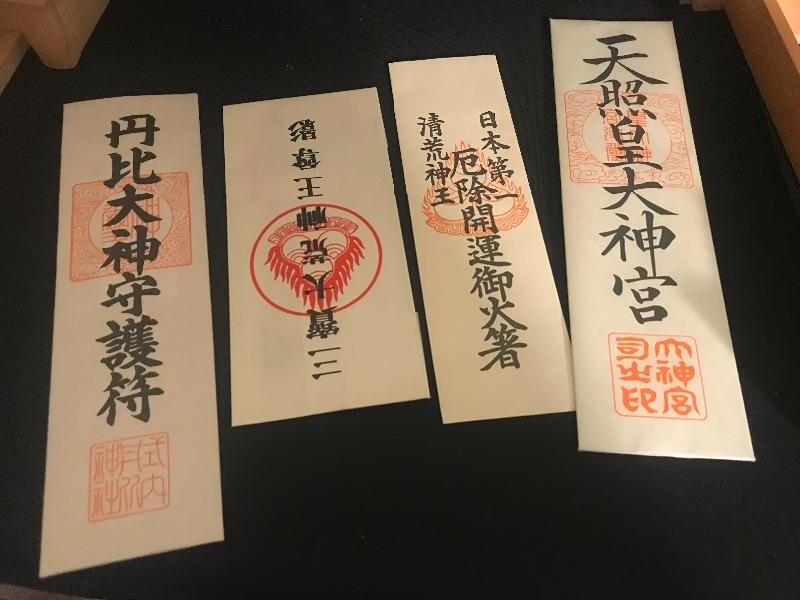 天照皇大神宮
大神宮
司之印
日本第一
厄除開運御火箸
清荒神王
三寶大荒神王尊影
丹比大神守護符
式内
丹比
神社